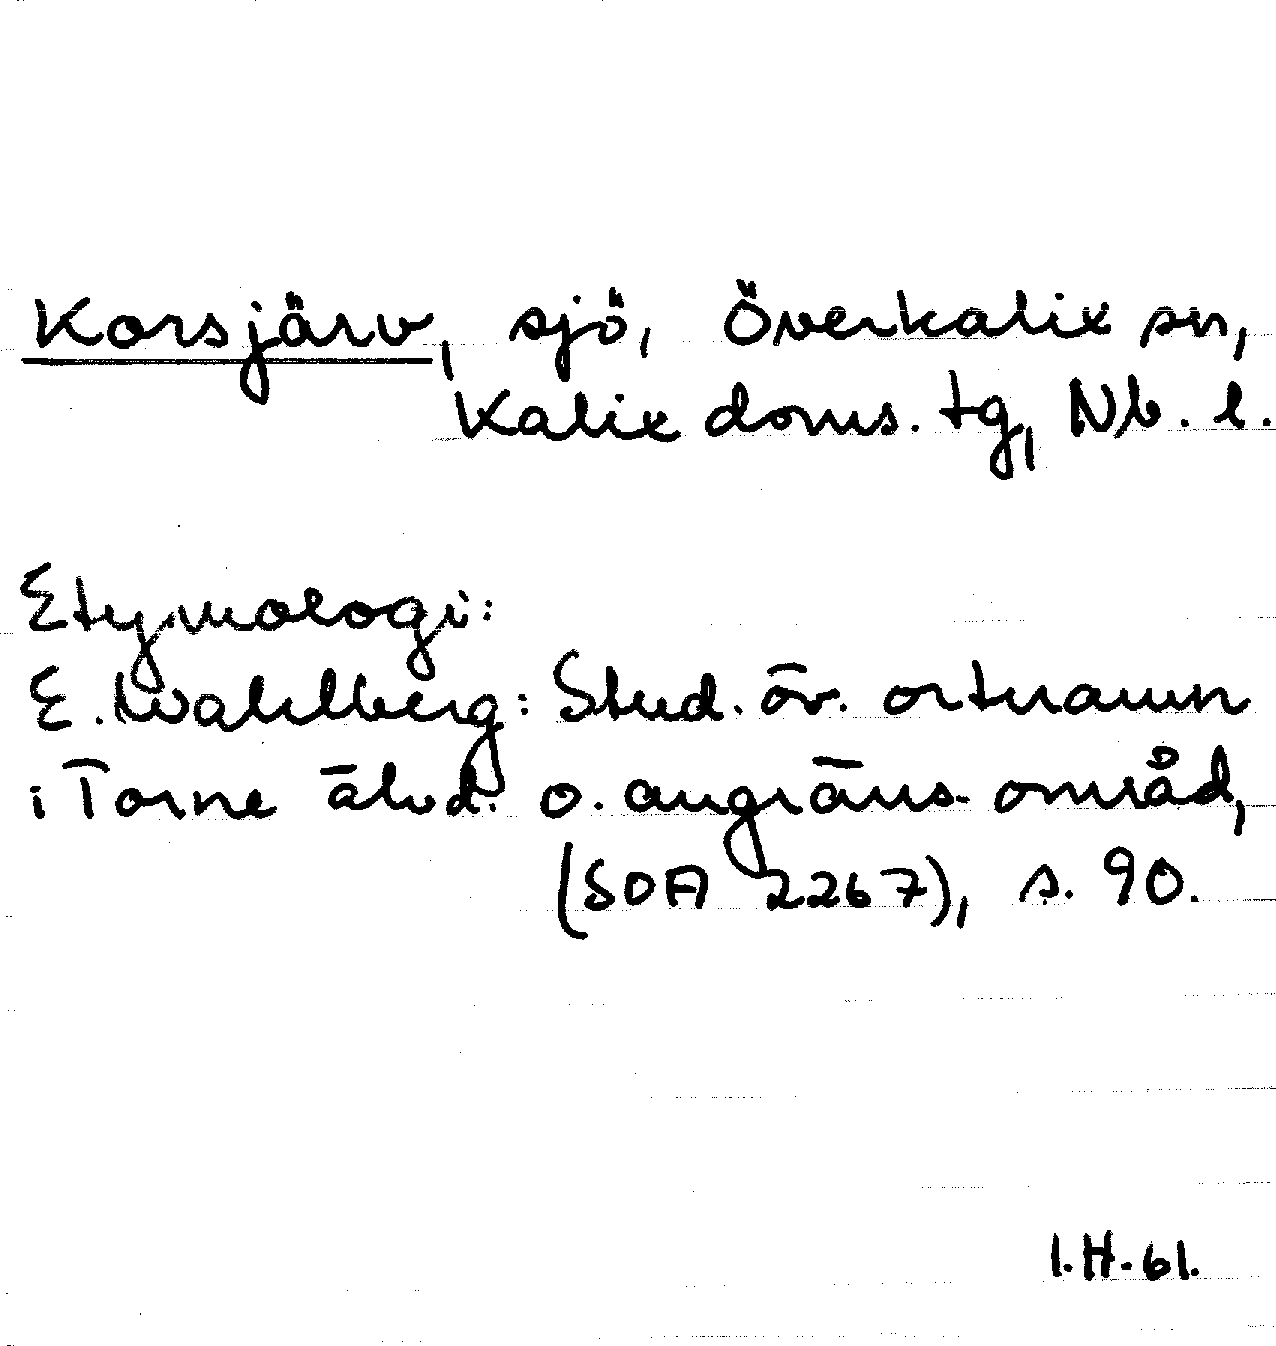 Korsjärv, sjö, Överkalix sn,
Kalix doms. tg, Nb. l.
Etymologi:
E. Wahlberg: Stud. öv. ortnamn
i Torne älvd. o. angräns. områd,
(SOA 2267), s. 90.
I.H. 61.